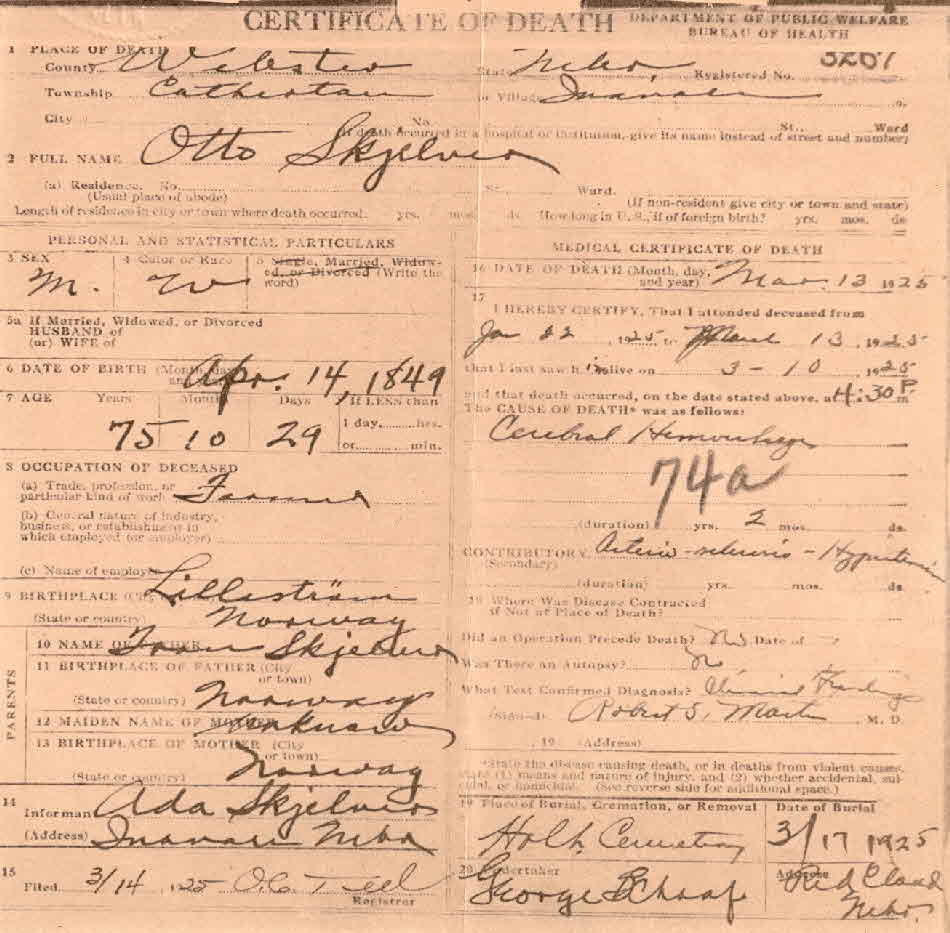 CERTIFICATE OF DEATH
DEPARTMENT OF PUBLIC WELFARE
BUREAU OF HEALTH
1 PLACE OF DEATH
County Webster State Nebr. Registered No. 3201
Township Catherton or Village Inavale or
City No. St., Ward
(If death occurred in a hospital or institution, give its name instead of street and number)
2 FULL NAME Otto Skjelver
(a) Residence. No. St., Ward.
(Usual place of abode) (If non-resident give city or town and state)
Length of residence in city or town where death occurred. yrs. mos. ds. How long in U. S., if of foreign birth? yrs. mos. ds
PERSONAL AND STATISTICAL PARTICULARS
3 SEX 4 Color or Race 5 Single, Married, Widowed, or Divorced (Write the word)
M. W
5a If Married, Widowed, or Divorced
HUSBAND of
(or) WIFE of
6 DATE OF BIRTH (Month, day and Apr. 14, 1849
7 AGE Years Months Days If LESS than
75 10 29 1 day, hrs.
or min.
8 OCCUPATION OF DECEASED
(a) Trade, profession, or
particular kind of work Farmer
(b) General nature of industry,
business, or establishment in
which employed (or employer)
(c) Name of employer
9 BIRTHPLACE (City Lilleström
(State or country) Norway
10 NAME OF FATHER Skjelver
11 BIRTHPLACE OF FATHER (City
or town)
(State or country) Norway
12 MAIDEN NAME OF MOTHER Unknown
13 BIRTHPLACE OF MOTHER (City
or town)
(State or country) Norway
PARENTS
14
Informant Ada Skjelver
(Address) Inavale Nebr
15
Filed 3/14 1925 O.C. Teel
Registrar
MEDICAL CERTIFICATE OF DEATH
16 DATE OF DEATH (Month, day, and year) Mar. 13 1925
17
I HEREBY CERTIFY, That I attended deceased from
Jan 22 1925 to March 13, 1925
that I last saw him alive on 3-10, 1925
and that death occurred, on the date stated above, at 4:30 P m
The CAUSE OF DEATH* was as follows:
Cerebral Hemorrhage
74a
(duration) yrs. 2 mos. ds.
CONTRIBUTORY Arterio-sclerosis - Hypertension
(Secondary)
(duration) yrs. mos. ds.
18 Where Was Disease Contracted
if Not at Place of Death?
Did an Operation Precede Death? No Date of
Was There an Autopsy? No
What Test Confirmed Diagnosis? Clinical Findings
(Signed) Robert S. Martin, M. D.
, 19 (Address)
*State the disease causing death, or in deaths from violent causes,
state (1) means and nature of injury, and (2) whether accidental, sui-
cidal, or homicidal. (See reverse side for additional space.)
19 Place of Burial, Cremation, or Removal Date of Burial
Cemetery 3/17 1925
20 Undertaker Address
George Schaaf Red Cloud
Nebr.